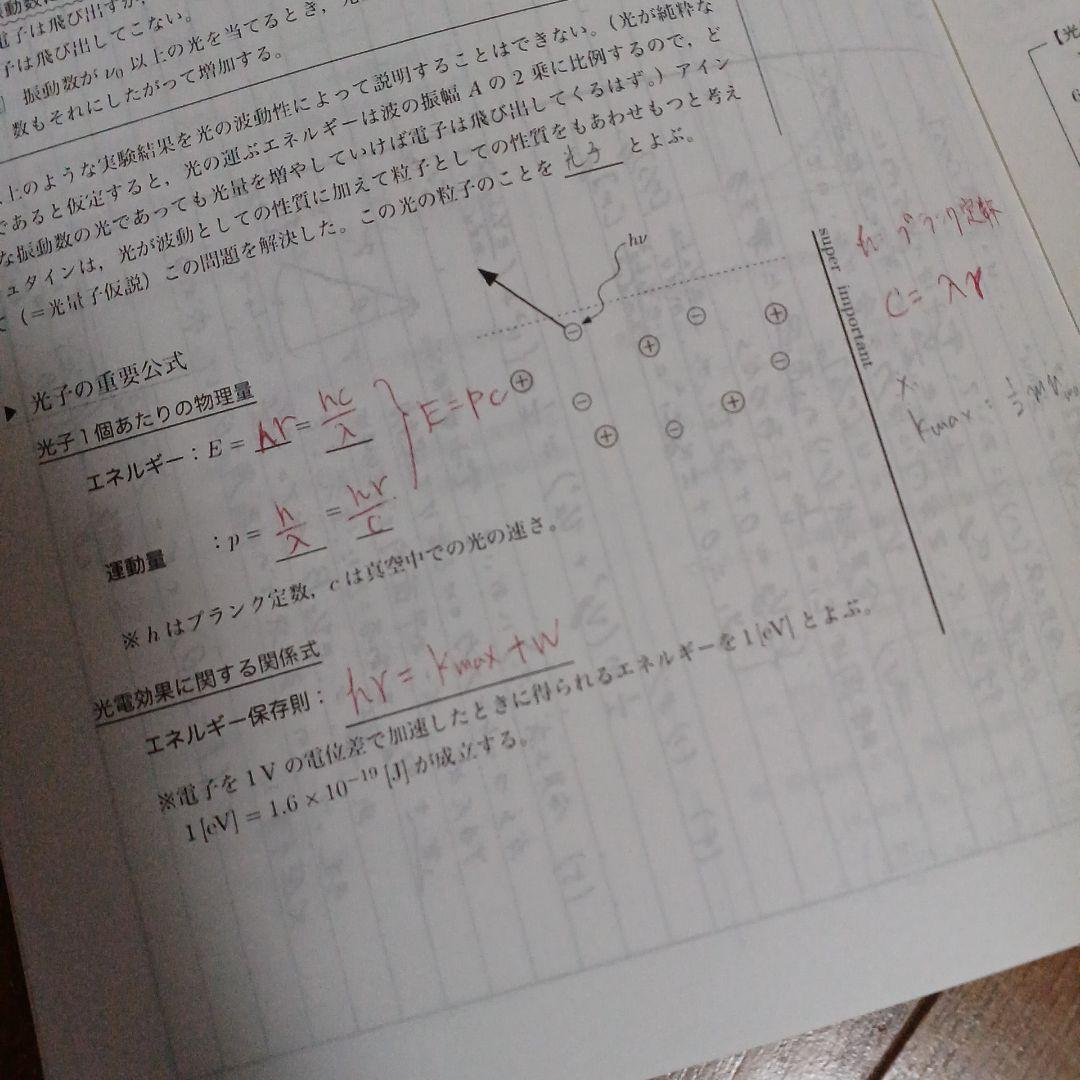 電子は飛び出すが,
子は飛び出してこない。
振動数が ν₀ 以上の光を当てるとき,
数もそれにしたがって増加する。
上のような実験結果を光の波動性によって説明することはできない。(光が純粋な
であると仮定すると, 光の運ぶエネルギーは波の振幅 A の 2 乗に比例するので, ど
な振動数の光であっても光量を増やしていけば電子は飛び出してくるはず。) アイン
シュタインは, 光が波動としての性質に加えて粒子としての性質をもあわせもつと考え
て (=光量子仮説) この問題を解決した。この光の粒子のことを 光子 とよぶ。
hν
⊖ ⊖ ⊕
⊕ ⊖
⊕ ⊖ ⊕
⊕ ⊖
super important
h: プランク定数
C = λν
kmax : ½ m
▶ 光子の重要公式
光子1個あたりの物理量
エネルギー : E = hν = hc/λ
E = PC
運動量 : p = h/λ = hν/c
※ h はプランク定数, c は真空中での光の速さ。
光電効果に関する関係式
エネルギー保存則 : hν = kmax + W
※電子を 1 V の電位差で加速したときに得られるエネルギーを 1 [eV] とよぶ。
1 [eV] = 1.6 × 10⁻¹⁹ [J] が成立する。
【光